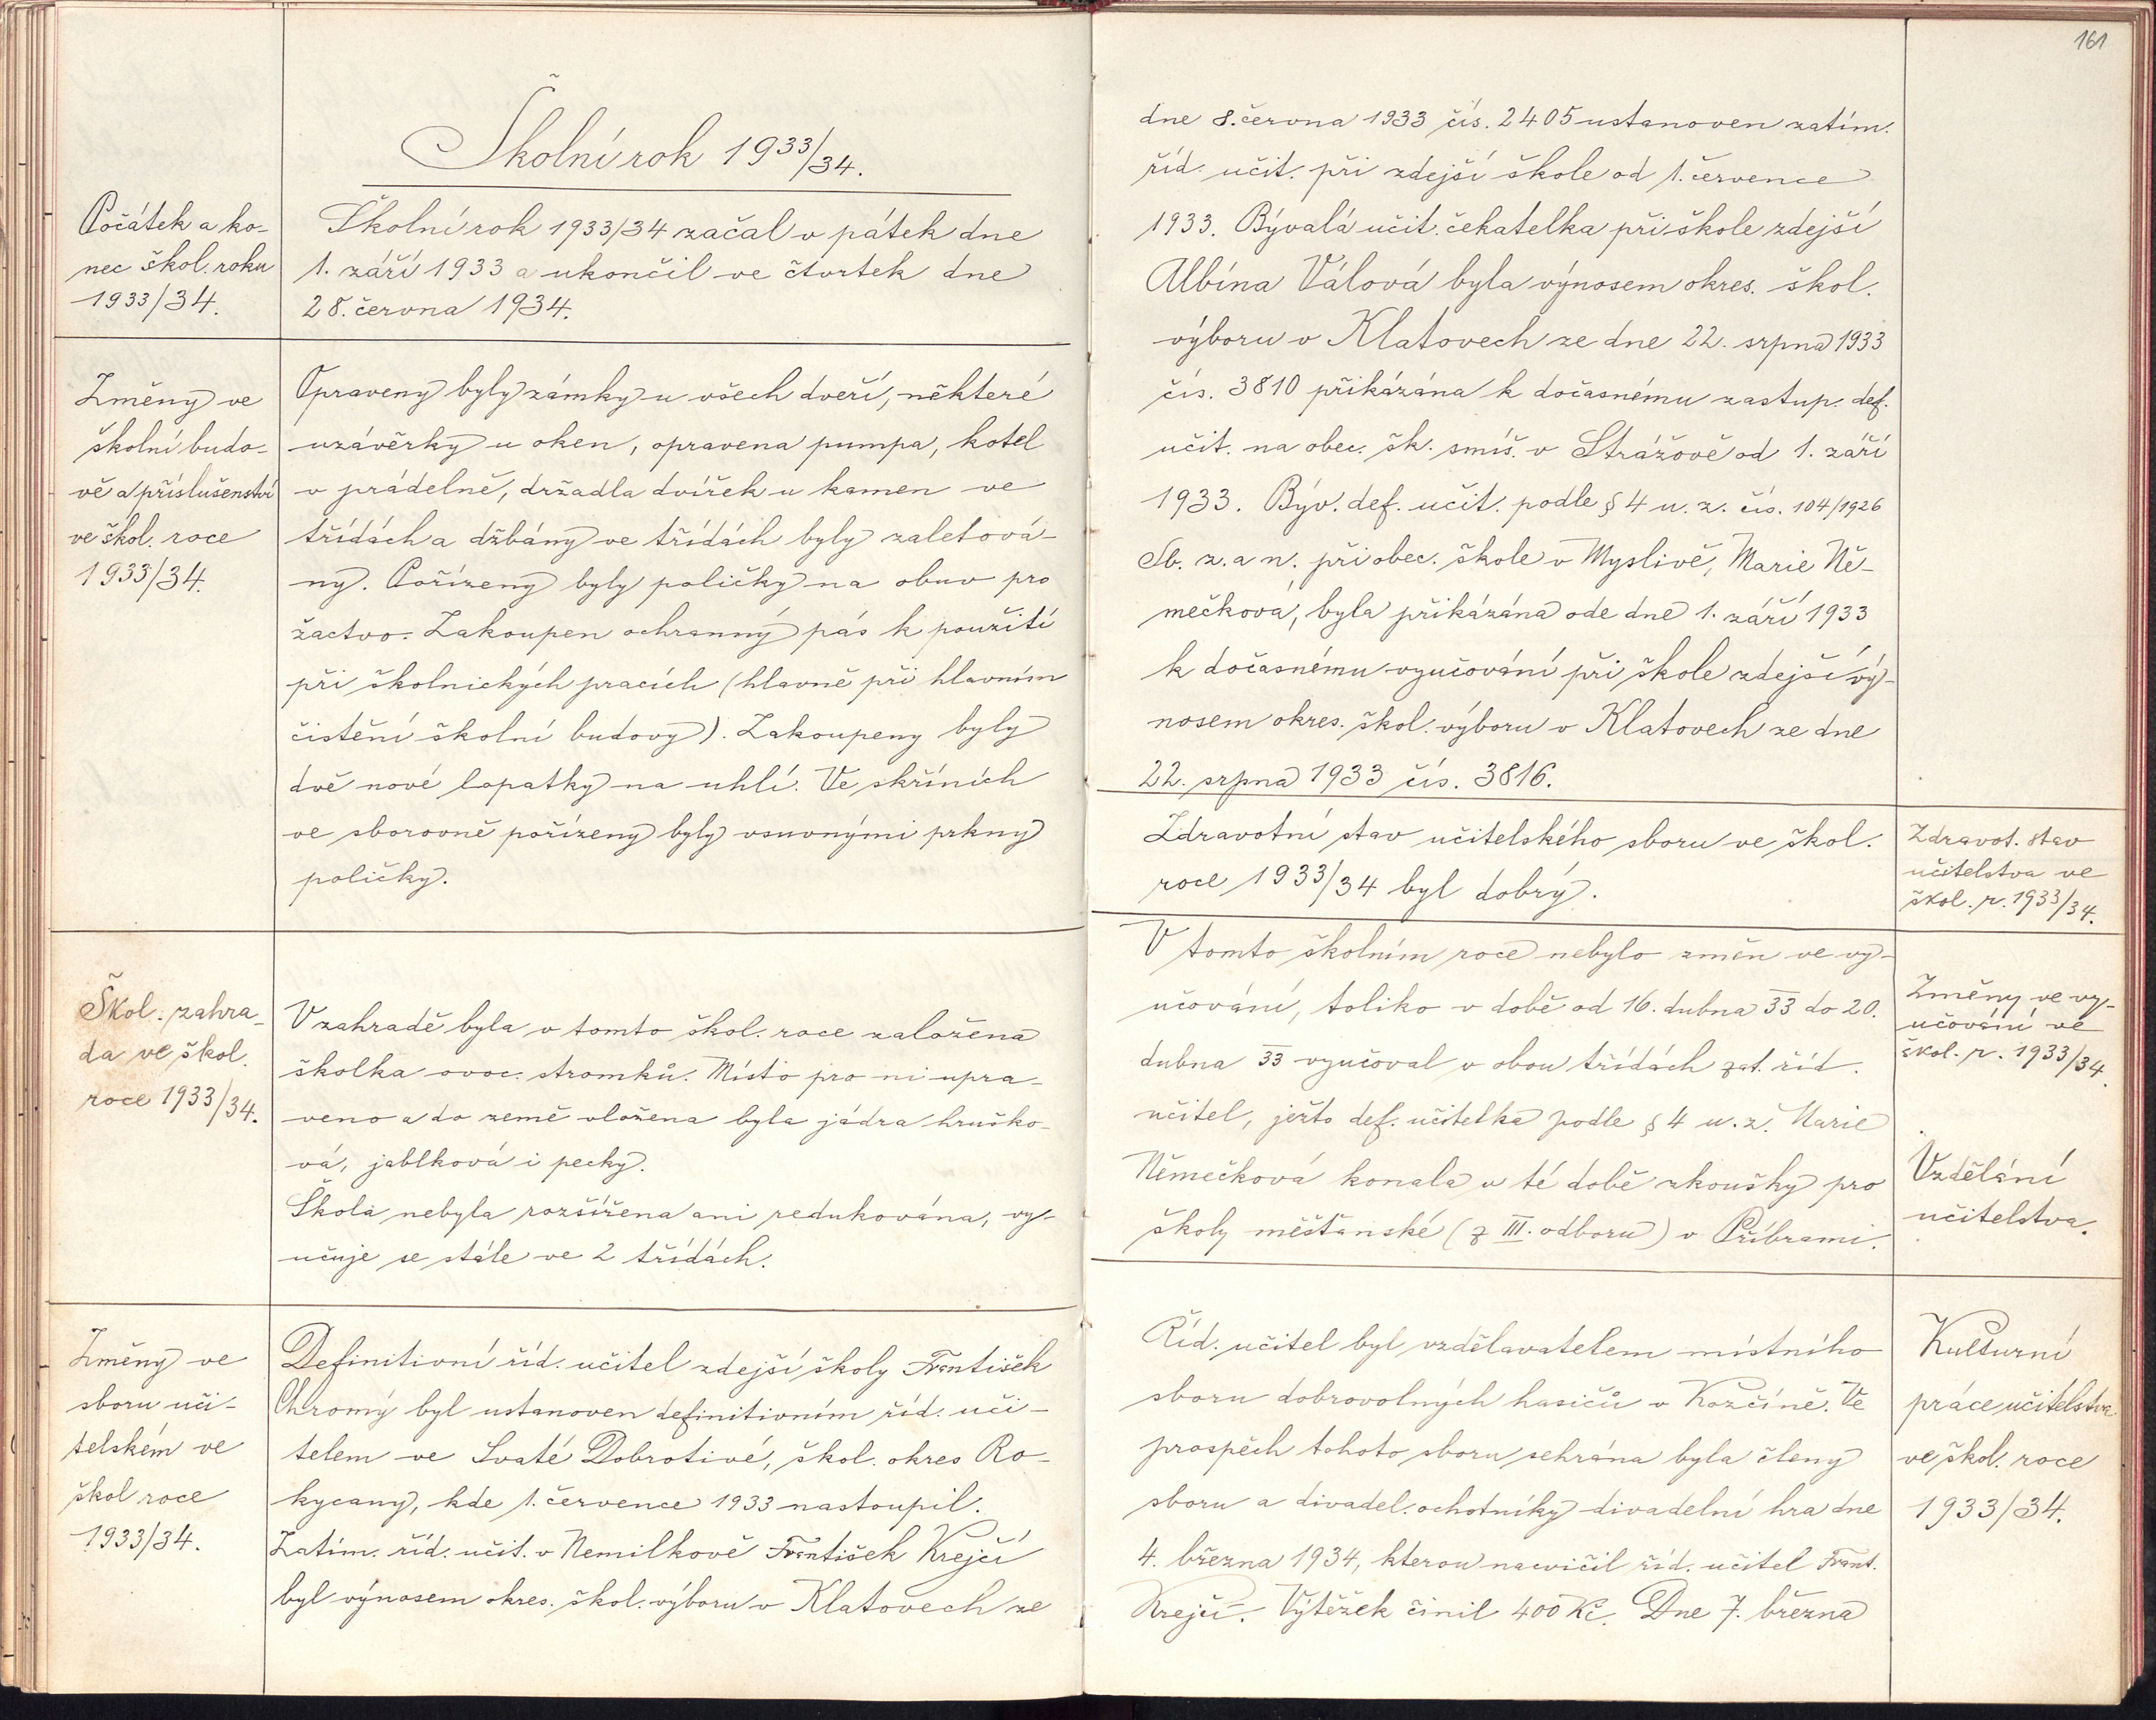 Školní rok 1933/34.
Počátek a ko-
nec škol. roku
1933/34.
Školní rok 1933/34 začal v pátek dne
1. září 1933 a ukončil ve čtvrtek dne
28. června 1934.
Změny ve
školní budo-
vě a příslušenství
ve škol. roce
1933/34.
Opraveny byly zámky u všech dveří, některé
uzávěrky u oken, opravena pumpa, kotel
v prádelně, držadla dvířek u kamen ve
třídách a džbány ve třídách byly zaletová-
ny. Pořízeny byly poličky na obuv pro
žactvo. Zakoupen ochranný pás k použití
při školnických pracích (hlavně při hlavním
čistění školní budovy). Zakoupeny byly
dvě nové lopatky na uhlí. Ve skříních
ve sborovně pořízeny byly vsuvnými prkny
poličky.
Škol. zahra-
da ve škol.
roce 1933/34.
V zahradě byla v tomto škol. roce založena
školka ovoc. stromků. Místo pro ni upra-
veno a do země vložena byla jádra hruško-
vá, jablková i pecky.
Škola nebyla rozšířena ani redukována, vy-
učuje se stále ve 2 třídách.
Změny ve
sboru uči-
telském ve
škol roce
1933/34.
Definitivní říd. učitel zdejší školy František
Chromý byl ustanoven definitivním říd. uči-
telem ve Svaté Dobrotivé, škol. okres Ro-
kycany, kde 1. července 1933 nastoupil.
Zatím. říd. učit. v Nemilkově František Krejčí
byl výnosem okres. škol. výboru v Klatovech ze
161
dne 8. června 1933 čís. 2405 ustanoven zatím.
říd. učit. při zdejší škole od 1. července
1933. Bývalá učit. čekatelka při škole zdejší
Albína Válová byla výnosem okres. škol.
výboru v Klatovech ze dne 22. srpna 1933
čís. 3810 přikázána k dočasnému zastup. def.
učit. na obec. šk. smíš. v Strážově od 1. září
1933. Býv. def. učit. podle § 4 u. z. čís. 104/1926
Sb. z. a n. při obec. škole v Myslivě, Marie Ně-
mečková, byla přikázána ode dne 1. září 1933
k dočasnému vyučování při škole zdejší vý-
nosem okres. škol. výboru v Klatovech ze dne
22. srpna 1933 čís. 3816.
Zdravotní stav učitelského sboru ve škol.
roce 1933/34 byl dobrý.
Zdravot. stav
učitelstva ve
škol. r. 1933/34.
V tomto školním roce nebylo změn ve vy-
učování, toliko v době od 16. dubna 33 do 20.
dubna 33 vyučoval v obou třídách zat. říd.
učitel, ježto def. učitelka podle § 4 u. z. Marie
Němečková konala v té době zkoušky pro
školy měšťanské (z III. odboru) v Příbrami.
Změny ve vy-
učování ve
škol. r. 1933/34.
Vzdělání
učitelstva.
Říd. učitel byl vzdělavatelem místního
sboru dobrovolných hasičů v Kozčíně. Ve
prospěch tohoto sboru sehrána byla členy
sboru a divadel. ochotníky divadelní hra dne
4. března 1934, kterou nacvičil říd. učitel Frant.
Krejčí. Výtěžek činil 400 Kč. Dne 7. března
Kulturní
práce učitelstva
ve škol. roce
1933/34.